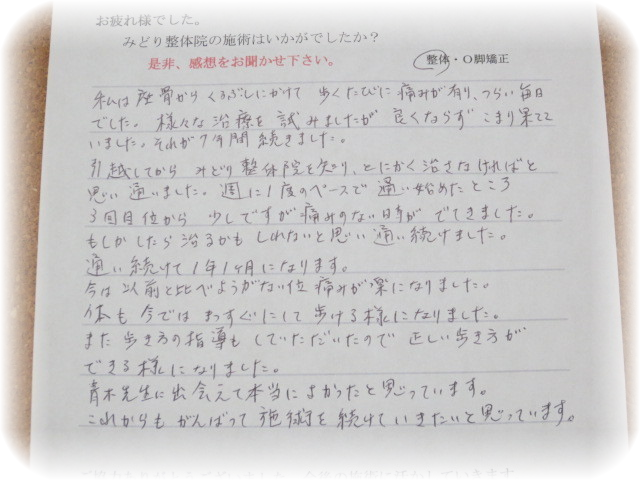 お疲れ様でした。
みどり整体院の施術はいかがでしたか？
是非、感想をお聞かせ下さい。
整体・O脚矯正
私は座骨からくるぶしにかけて 歩くたびに痛みが有り、つらい毎日
でした。様々な治療を試みましたが 良くならず こまり果てて
いました。それが7年間続きました。
引越してから みどり整体院を知り、とにかく治さなければと
思い通いました。週に1度のペースで通い始めたところ
3回目位から 少しですが痛みのない日がでてきました。
もしかしたら治るかもしれないと思い通い続けました。
通い続けて1年1ヶ月になります。
今は以前と比べようがない位 痛みが楽になりました。
体も今ではまっすぐにして歩ける様になりました。
また歩き方の指導もしていただいたので 正しい歩き方が
できる様になりました。
青木先生に出会えて本当によかったと思っています。
これからもがんばって施術を続けていきたいと思っています。